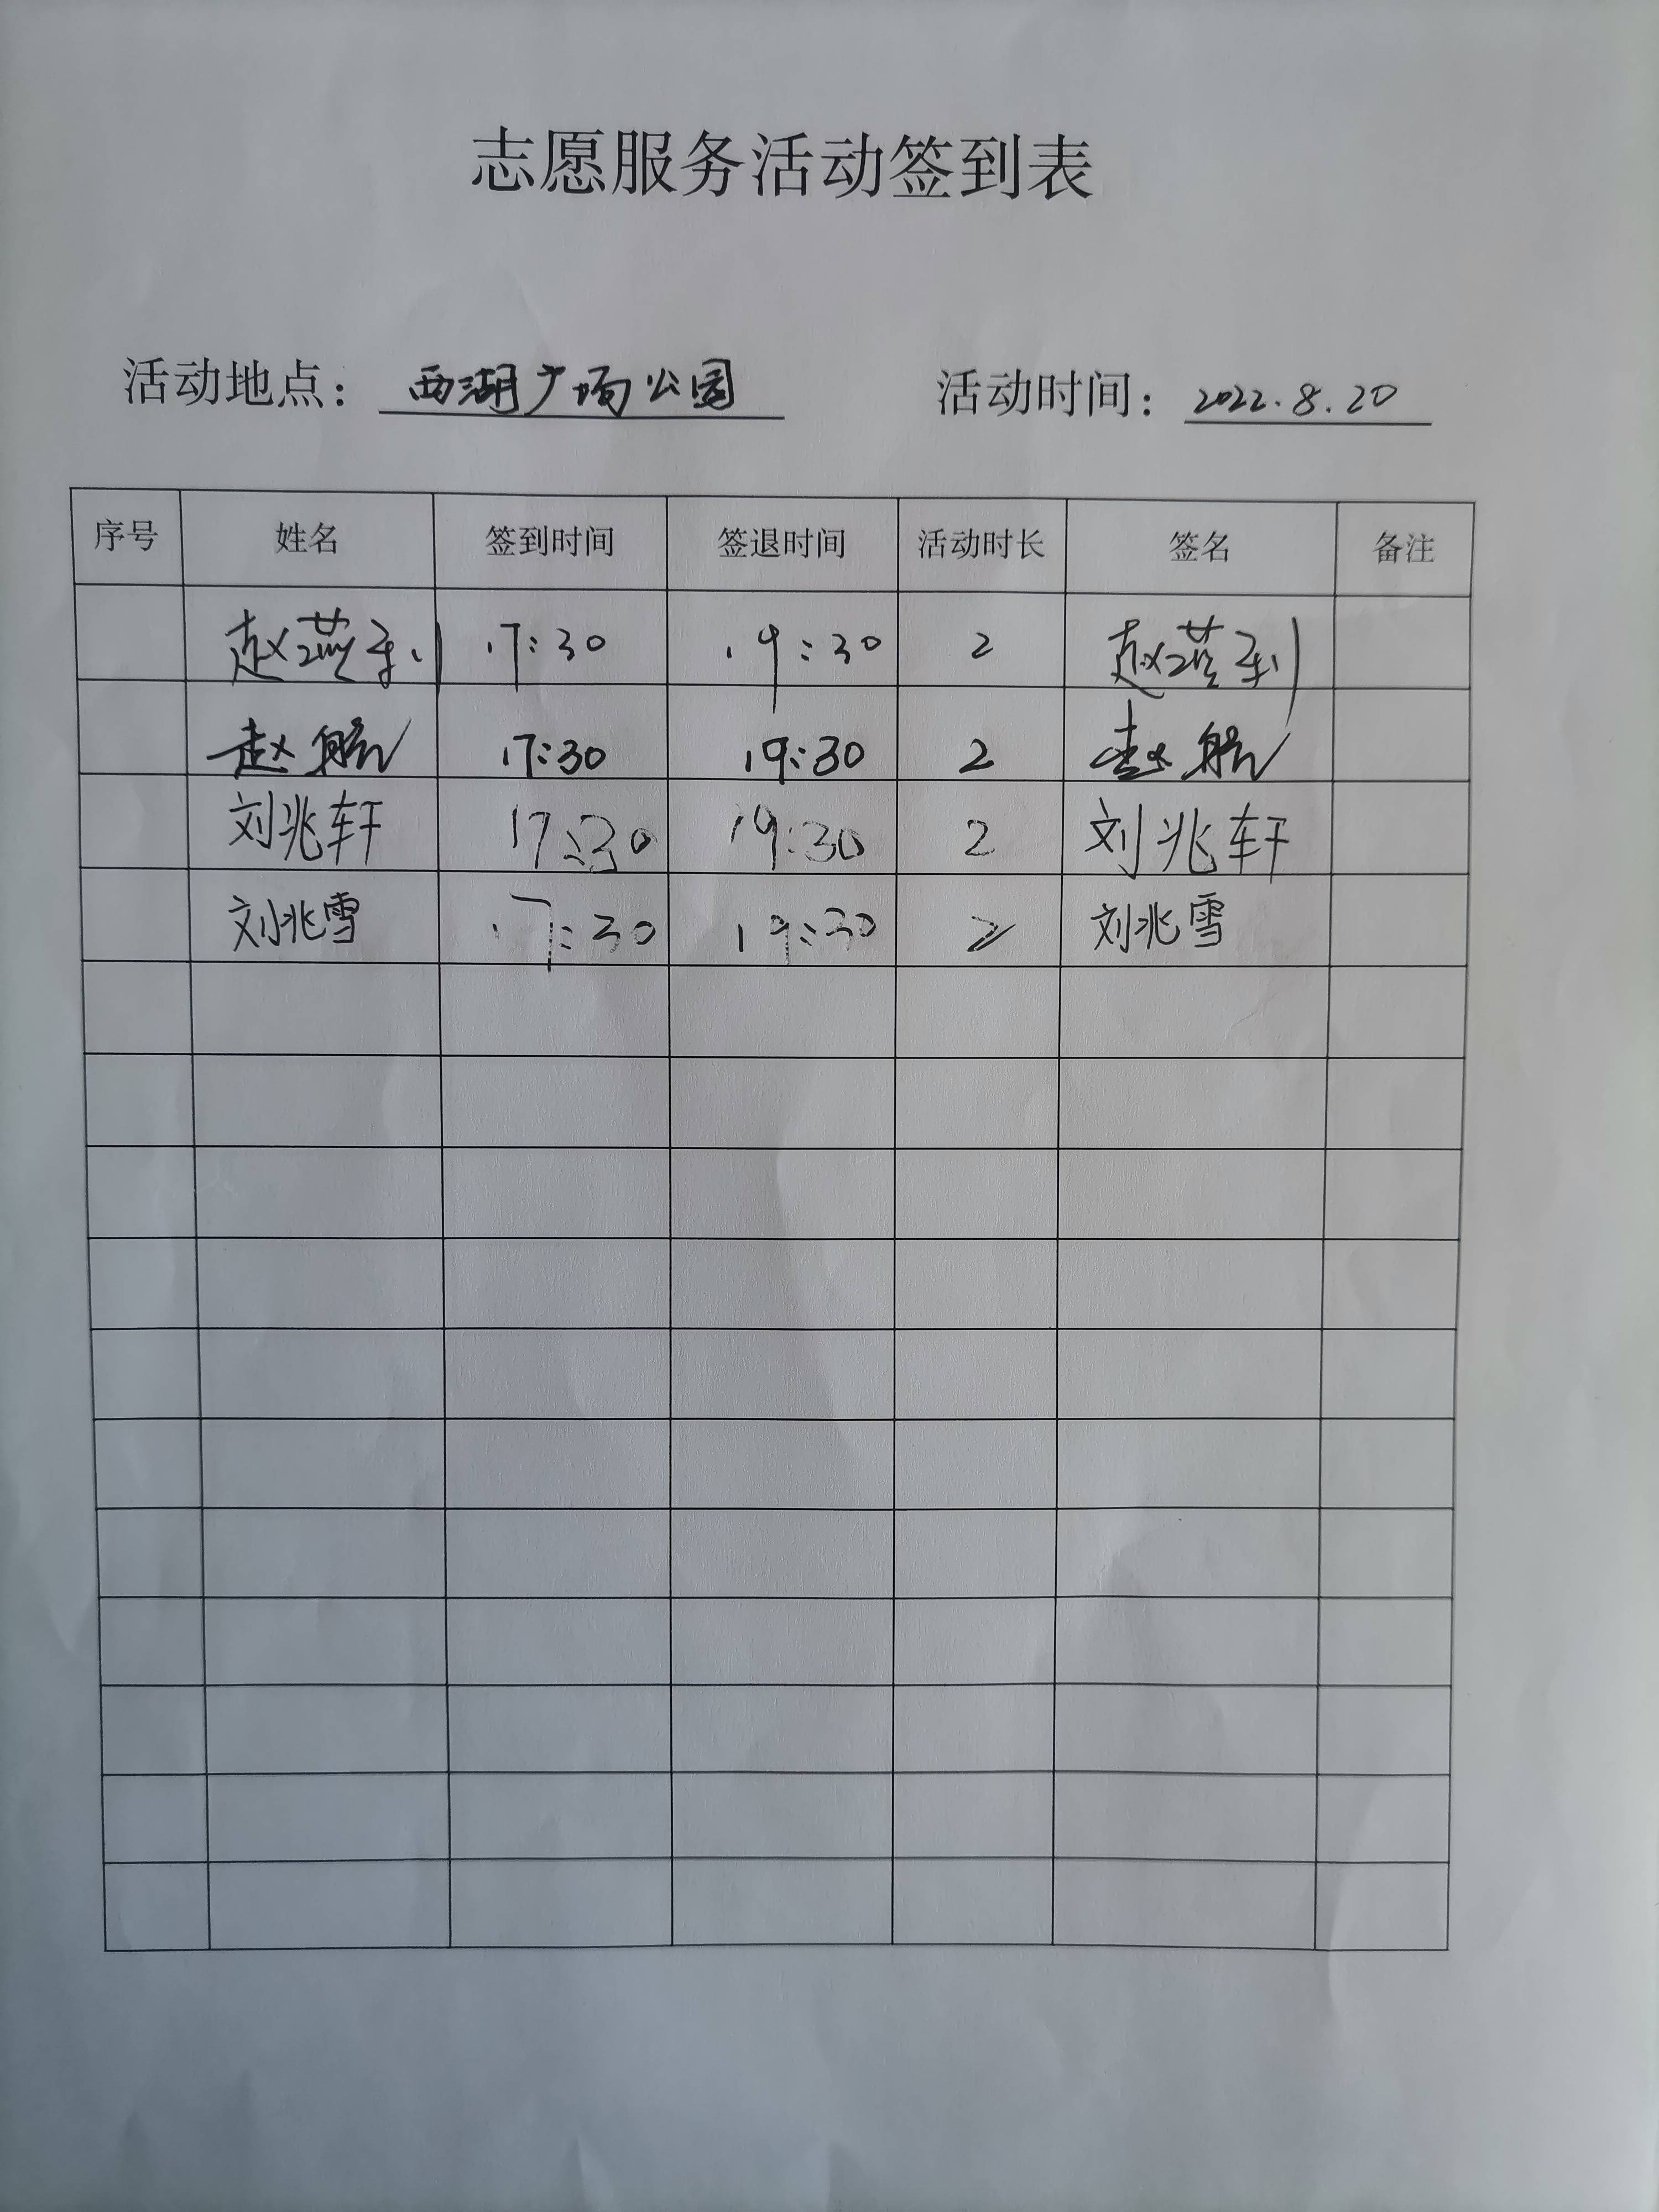 志愿服务活动签到表
活动地点：西湖广场公园 活动时间：2022.8.20
序号 姓名 签到时间 签退时间 活动时长 签名 备注
赵 17:30 19:30 2 赵
赵 17:30 19:30 2 赵
刘兆轩 17:30 19:30 2 刘兆轩
刘兆雪 17:30 19:30 2 刘兆雪